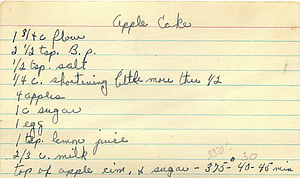 Apple Cake
1 3/4 c flour
2 1/2 tsp. B.p.
1/2 tsp. salt
1/4 c. shortening little more then 1/2
4 apples
1 c sugar
1 egg
1 tsp. lemon juice
2/3 c. milk
350° 30
top of apple cin, & sugar - 375° 40-45 min